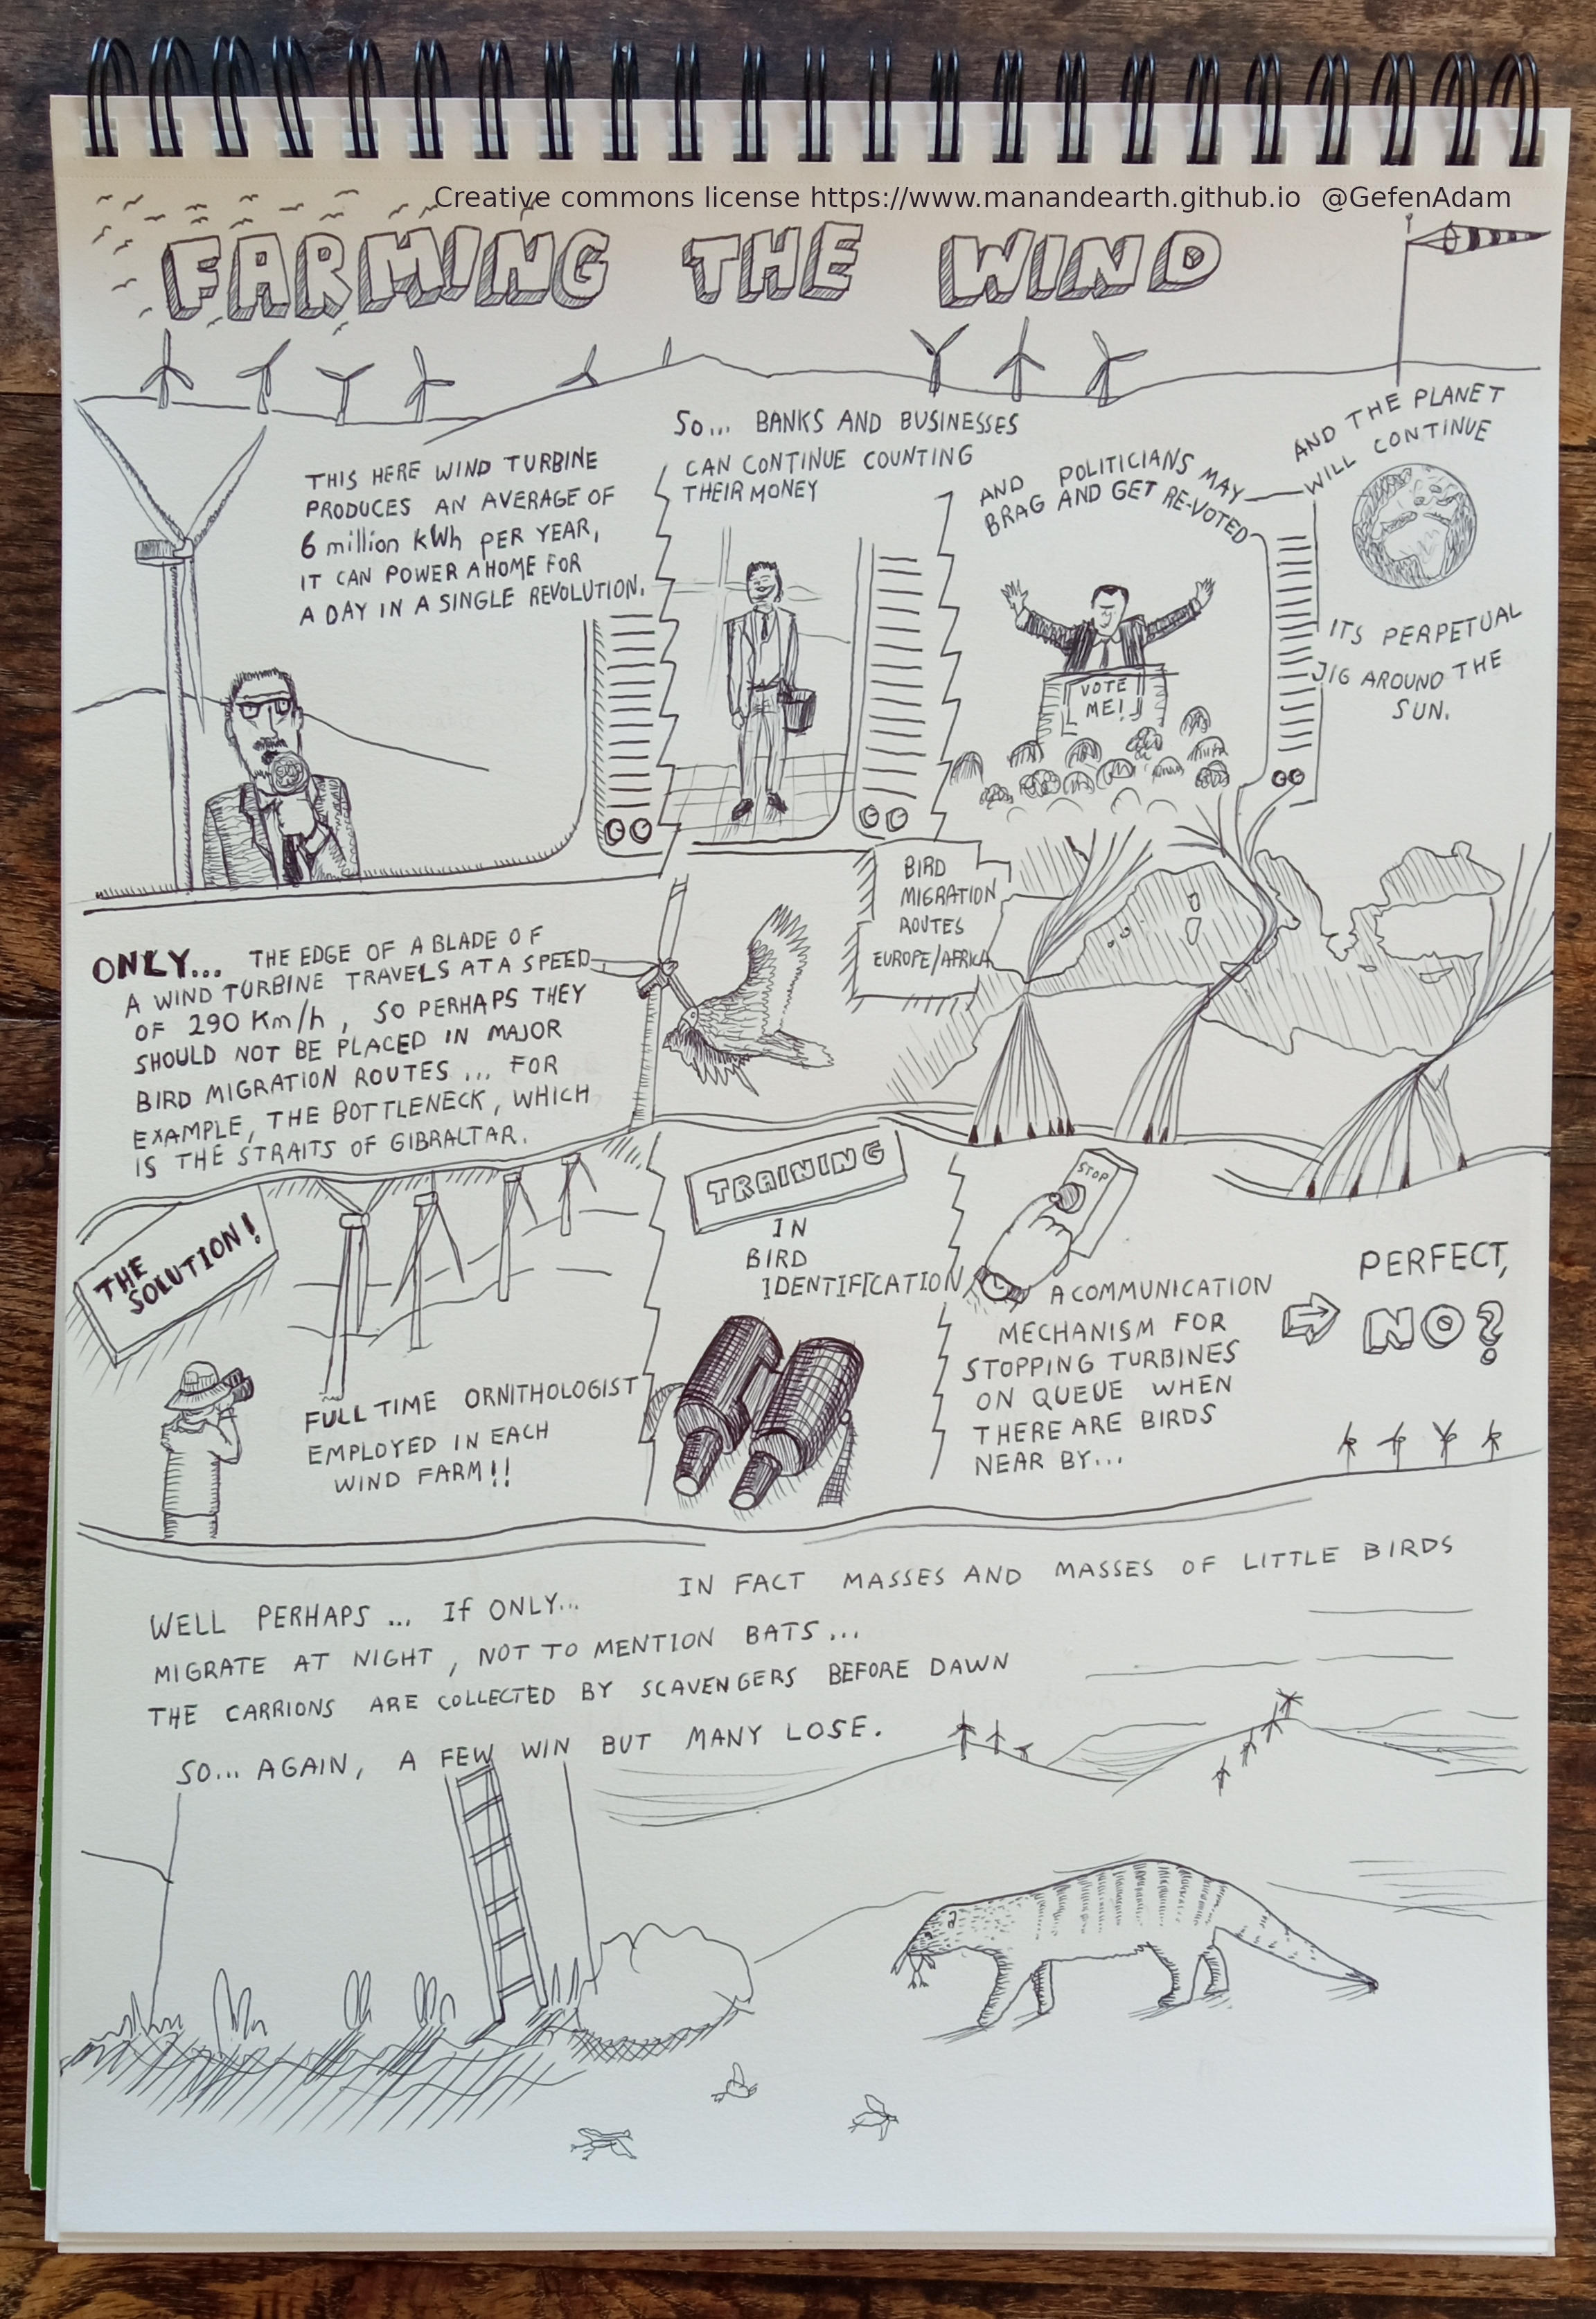 Creative commons license https://www.manandearth.github.io @GefenAdam
FARMING THE WIND
THIS HERE WIND TURBINE
PRODUCES AN AVERAGE OF
6 million kWh PER YEAR,
IT CAN POWER A HOME FOR
A DAY IN A SINGLE REVOLUTION.
SO... BANKS AND BUSINESSES
CAN CONTINUE COUNTING
THEIR MONEY
AND POLITICIANS MAY
BRAG AND GET RE-VOTED
VOTE
ME!
AND THE PLANET
WILL CONTINUE
ITS PERPETUAL
JIG AROUND THE
SUN.
ONLY... THE EDGE OF A BLADE OF
A WIND TURBINE TRAVELS AT A SPEED
OF 290 Km/h, SO PERHAPS THEY
SHOULD NOT BE PLACED IN MAJOR
BIRD MIGRATION ROUTES... FOR
EXAMPLE, THE BOTTLENECK, WHICH
IS THE STRAITS OF GIBRALTAR.
BIRD
MIGRATION
ROUTES
EUROPE/AFRICA
THE
SOLUTION!
FULL TIME ORNITHOLOGIST
EMPLOYED IN EACH
WIND FARM!!
TRAINING
IN
BIRD
IDENTIFICATION
STOP
A COMMUNICATION
MECHANISM FOR
STOPPING TURBINES
ON QUEUE WHEN
THERE ARE BIRDS
NEAR BY...
PERFECT,
NO?
WELL PERHAPS... If ONLY... IN FACT MASSES AND MASSES OF LITTLE BIRDS
MIGRATE AT NIGHT, NOT TO MENTION BATS...
THE CARRIONS ARE COLLECTED BY SCAVENGERS BEFORE DAWN
SO... AGAIN, A FEW WIN BUT MANY LOSE.